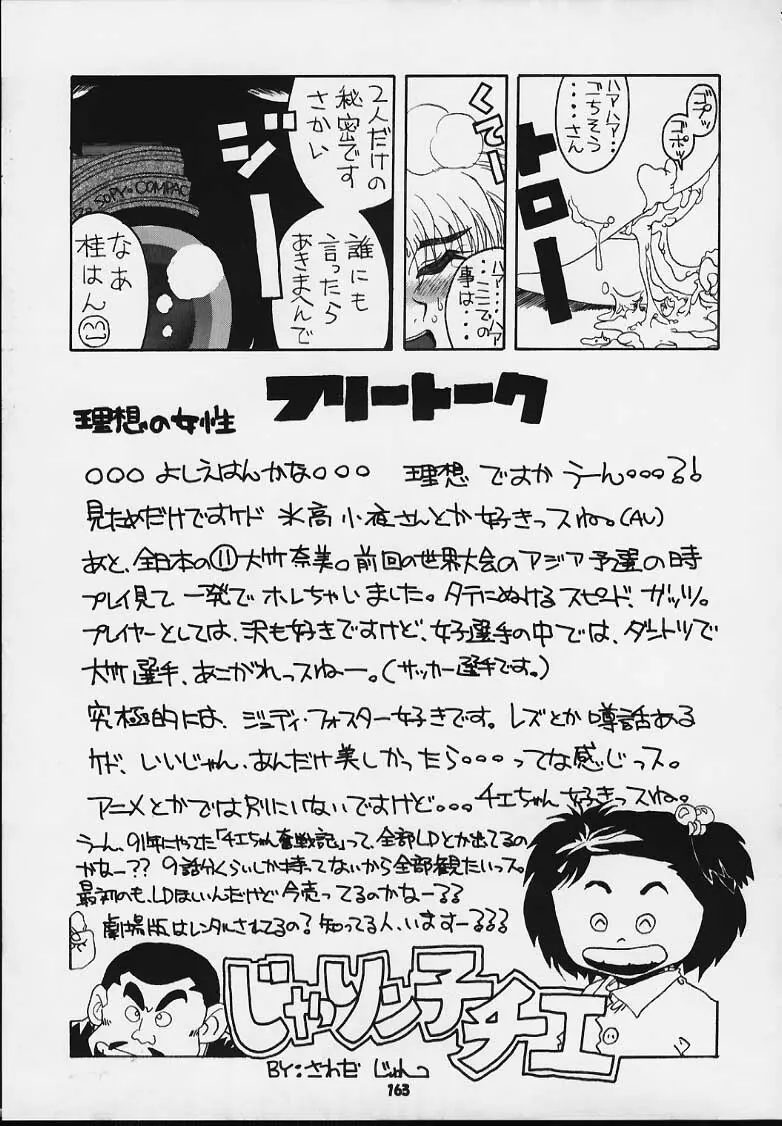 ゴプッ
ゴポッ
ハァハァ・・・
ごちそう
・・・・さん
トロー
くてー
ハァ・・・ハァ
・・ここでの
事は・・・・
2人だけの
秘密です
さかい
誰にも
言ったら
あきまへんで
ジー
SOPY・COMPAC
なあ
桂はん
フリートーク
理想の女性
○○○よしえはんかな○○○ 理想 ですか うーん。。。る!
見ためだけですケド 氷高 小夜さんとか好きっスね。(AV)
あと、全日本の⑪大竹奈美。前回の世界大会のアジア予選の時
プレイ見て 一発で ホレちゃいました。タテにぬける スピード、ガッツ。
プレイヤーとしては、沢も好きですけど、女子選手の中では、ダントツで
大竹選手、あこがれっスねー。(サッカー選手です。)
究極的には、ジュディ・フォスター好きです。レズとか噂話ある
ケド、いいじゃん、あんだけ美しかったら。。。ってな感じっス。
アニメとかでは別にいないですけど。。。チエちゃん好きっスね。
うーん、91年にやった「チエちゃん奮戦記」って、全部LDとか出てるの
かなー?? 9話分くらいしか持ってないから全部観たいっス。
最初のも、LDほしいんだけど今売ってるのかなーるる
劇場版はレンタルされてるの?知ってる人、いますーるるる
じゃりン子チエ
BY:さわだ じゅんこ
163